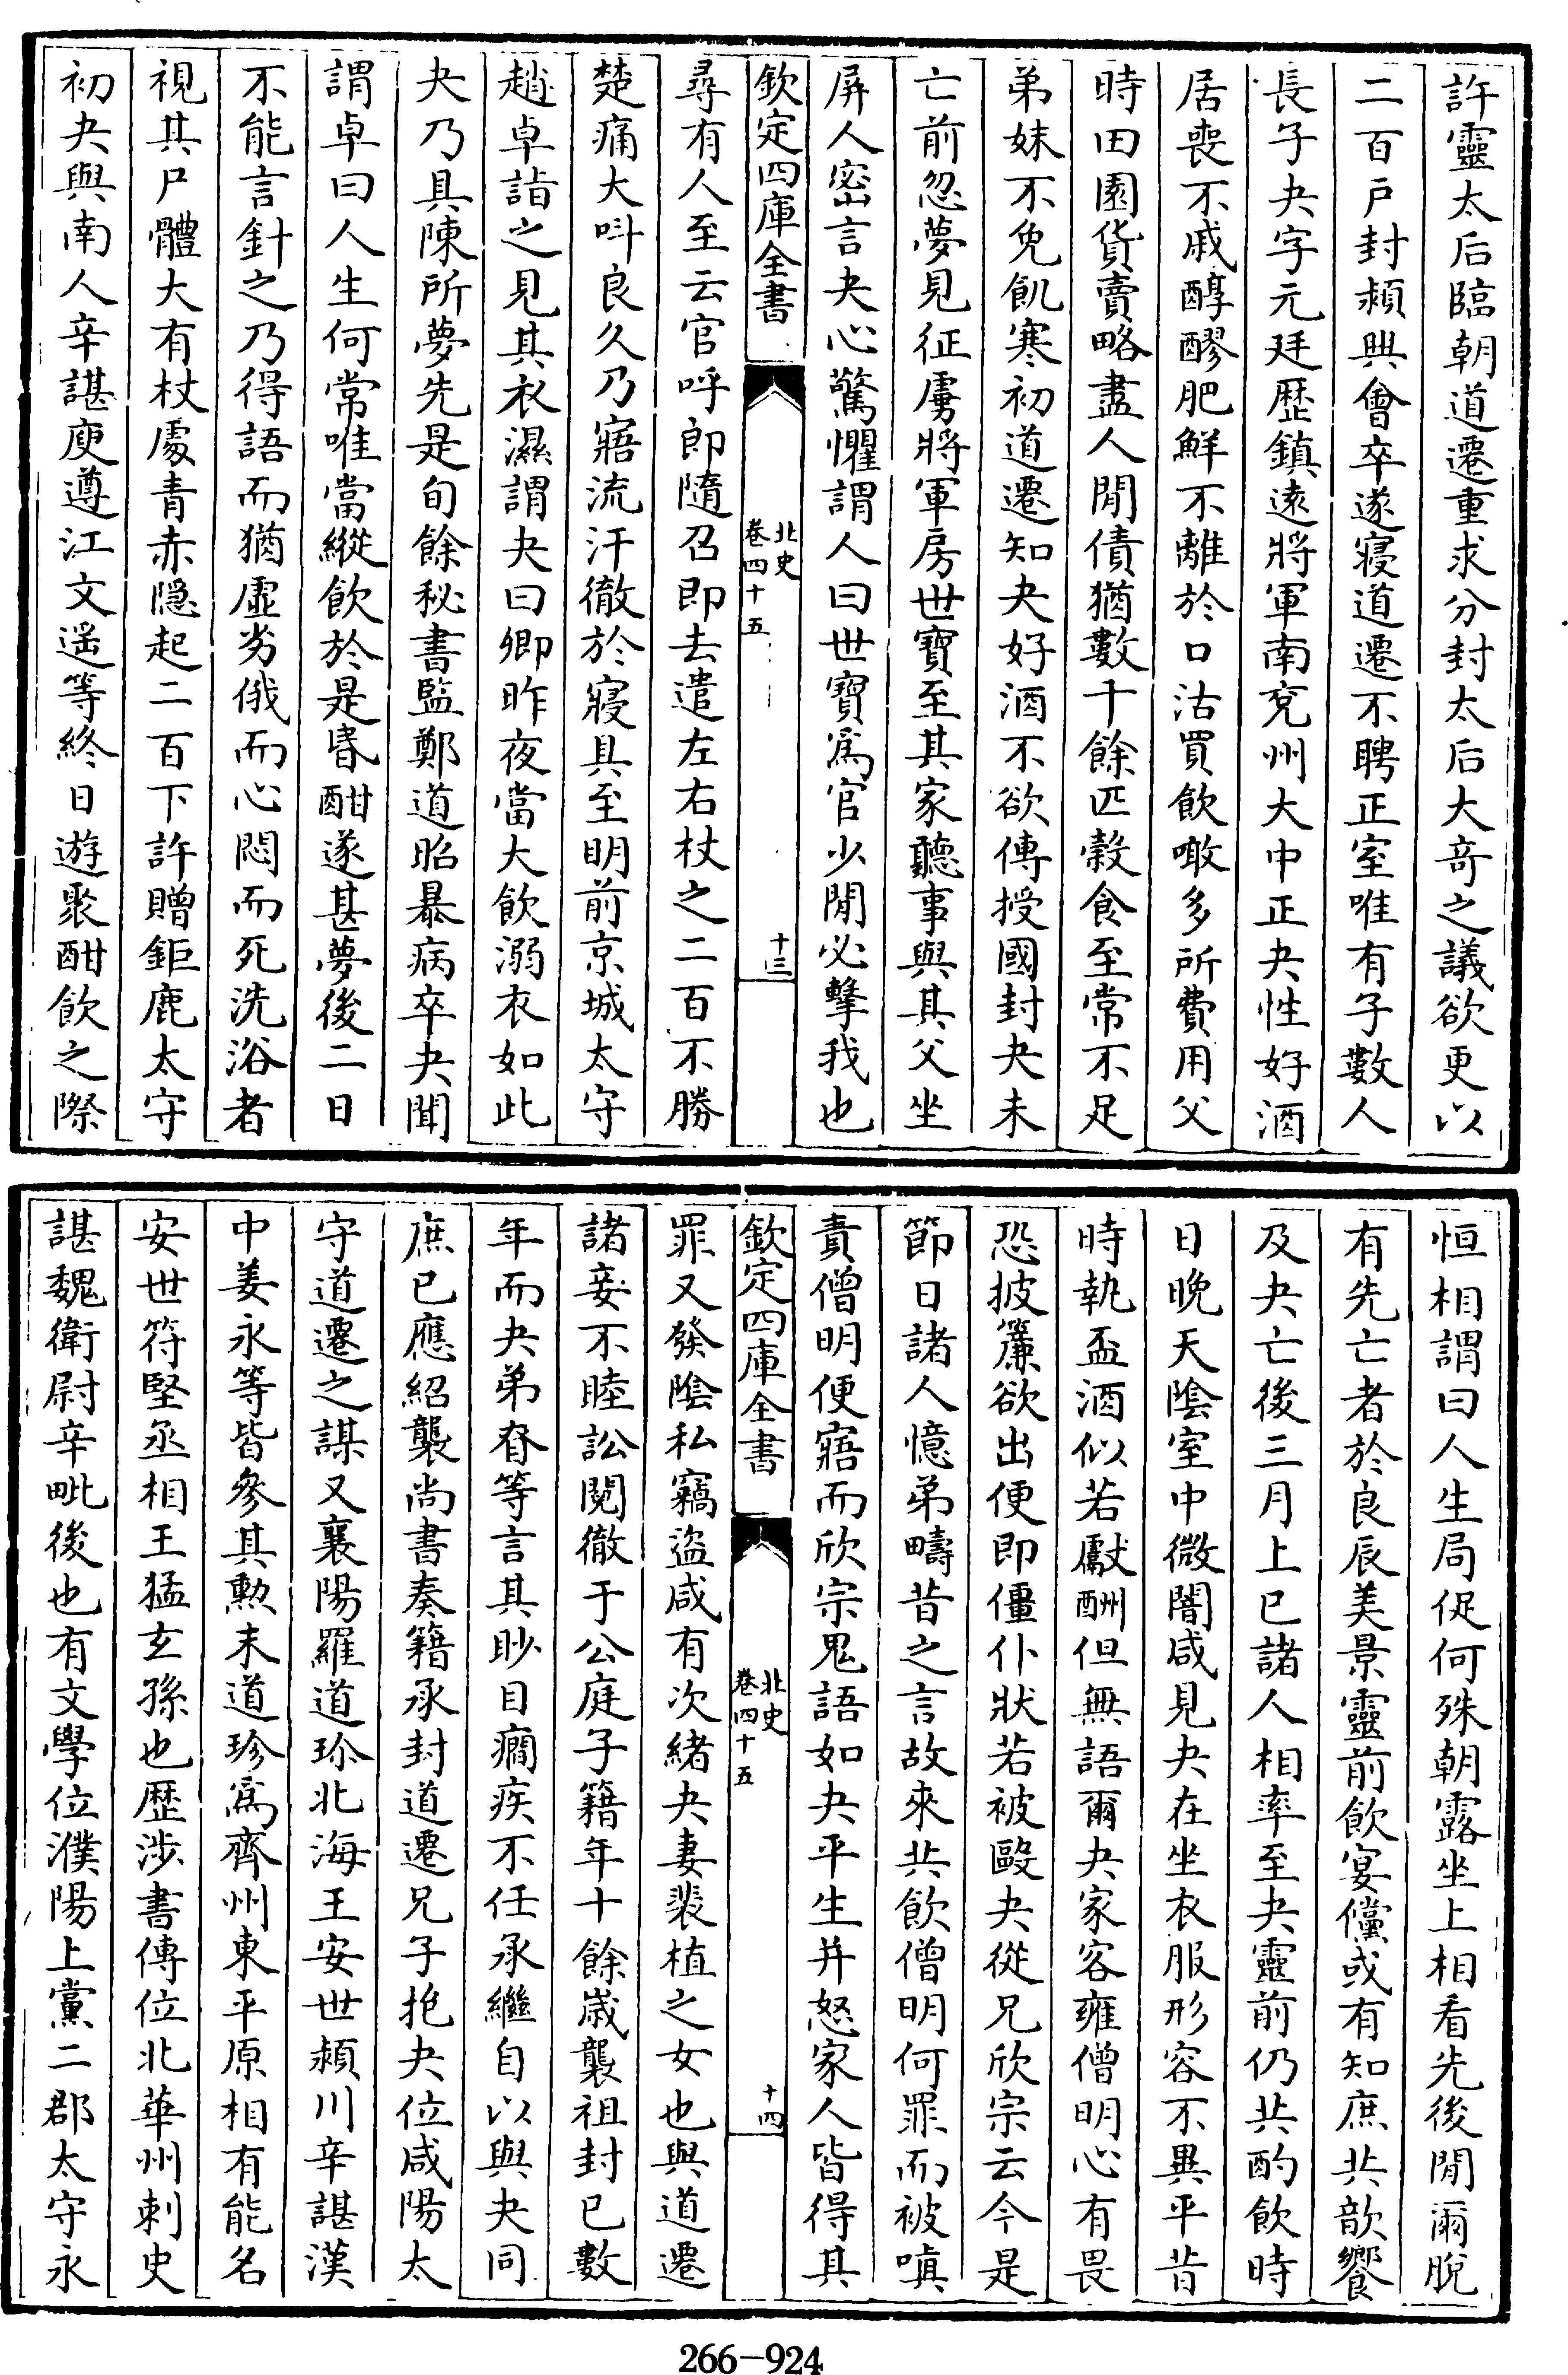 許靈太后臨朝道遷重求分封太后大奇之議欲更以
二百戸封頮興會卒遂寢道遷不聘正室唯有子數人
長子夬字元廷歴鎮遠將軍南兖州大中正夬性好酒
居喪不戚醇醪肥鮮不離於口沽買飲噉多所費用父
時田園貨賣略盡人閒債猶數千餘匹穀食至常不足
弟妹不免飢寒初道遷知夬好酒不欲傳授國封夬未
亡前忽夢見征虜將軍房世寶至其家聽事與其父坐
屏人密言夬心驚懼謂人曰世寶爲官少閒必擊我也
欽定四庫全書
北史
卷四十五
十三
尋有人至云官呼郎隨召即去遣左右杖之二百不勝
楚痛大呌良久乃寤流汗徹於寢具至明前京城太守
趙卓詣之見其衣濕謂夬曰卿昨夜當大飲溺衣如此
夬乃具陳所夢先是旬餘秘書監鄭道昭暴病卒夬聞
謂卓曰人生何常唯當縱飲於是昏酣遂甚夢後二日
不能言針之乃得語而猶虛劣俄而心悶而死洗浴者
視其尸體大有杖處青赤隱起二百下許贈鉅鹿太守
初夬與南人辛諶庾遵江文遥等終日遊聚酣飲之際
恒相謂曰人生局促何殊朝露坐上相看先後閒爾脫
有先亡者於良辰美景靈前飲宴儻或有知庶共歆饗
及夬亡後三月上巳諸人相率至夬靈前仍共酌飲時
日晚天陰室中微闇咸見夬在坐衣服形容不異平昔
時執盃酒似若獻酬但無語爾夬家客雍僧明心有畏
恐披簾欲出便即僵仆狀若被毆夬從兄欣宗云今是
節日諸人憶弟疇昔之言故來共飲僧明何罪而被嗔
責僧明便寤而欣宗鬼語如夬平生并怒家人皆得其
欽定四庫全書
北史
卷四十五
十四
罪又發陰私竊盜咸有次緒夬妻裴植之女也與道遷
諸妾不睦訟鬩徹于公庭子籍年十餘歲襲祖封已數
年而夬弟昚等言其眇目癎疾不任承繼自以與夬同
庶已應紹襲尚書奏籍承封道遷兄子抱夬位咸陽太
守道遷之謀又襄陽羅道珍北海王安世頮川辛諶漢
中姜永等皆參其勲末道珍爲齊州東平原相有能名
安世符堅丞相王猛玄孫也歴涉書傳位北華州刺史
諶魏衛尉辛毗後也有文學位濮陽上黨二郡太守永
266-924